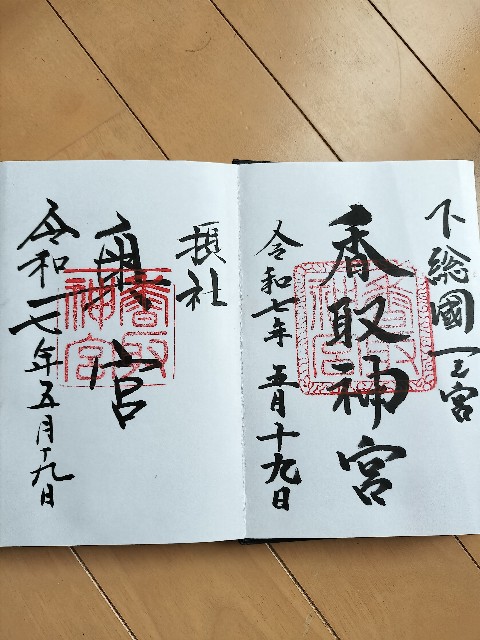 下総國一之宮
香取神宮
令和七年 五月十九日
摂社
奥宮
香取神宮
令和七年五月十九日